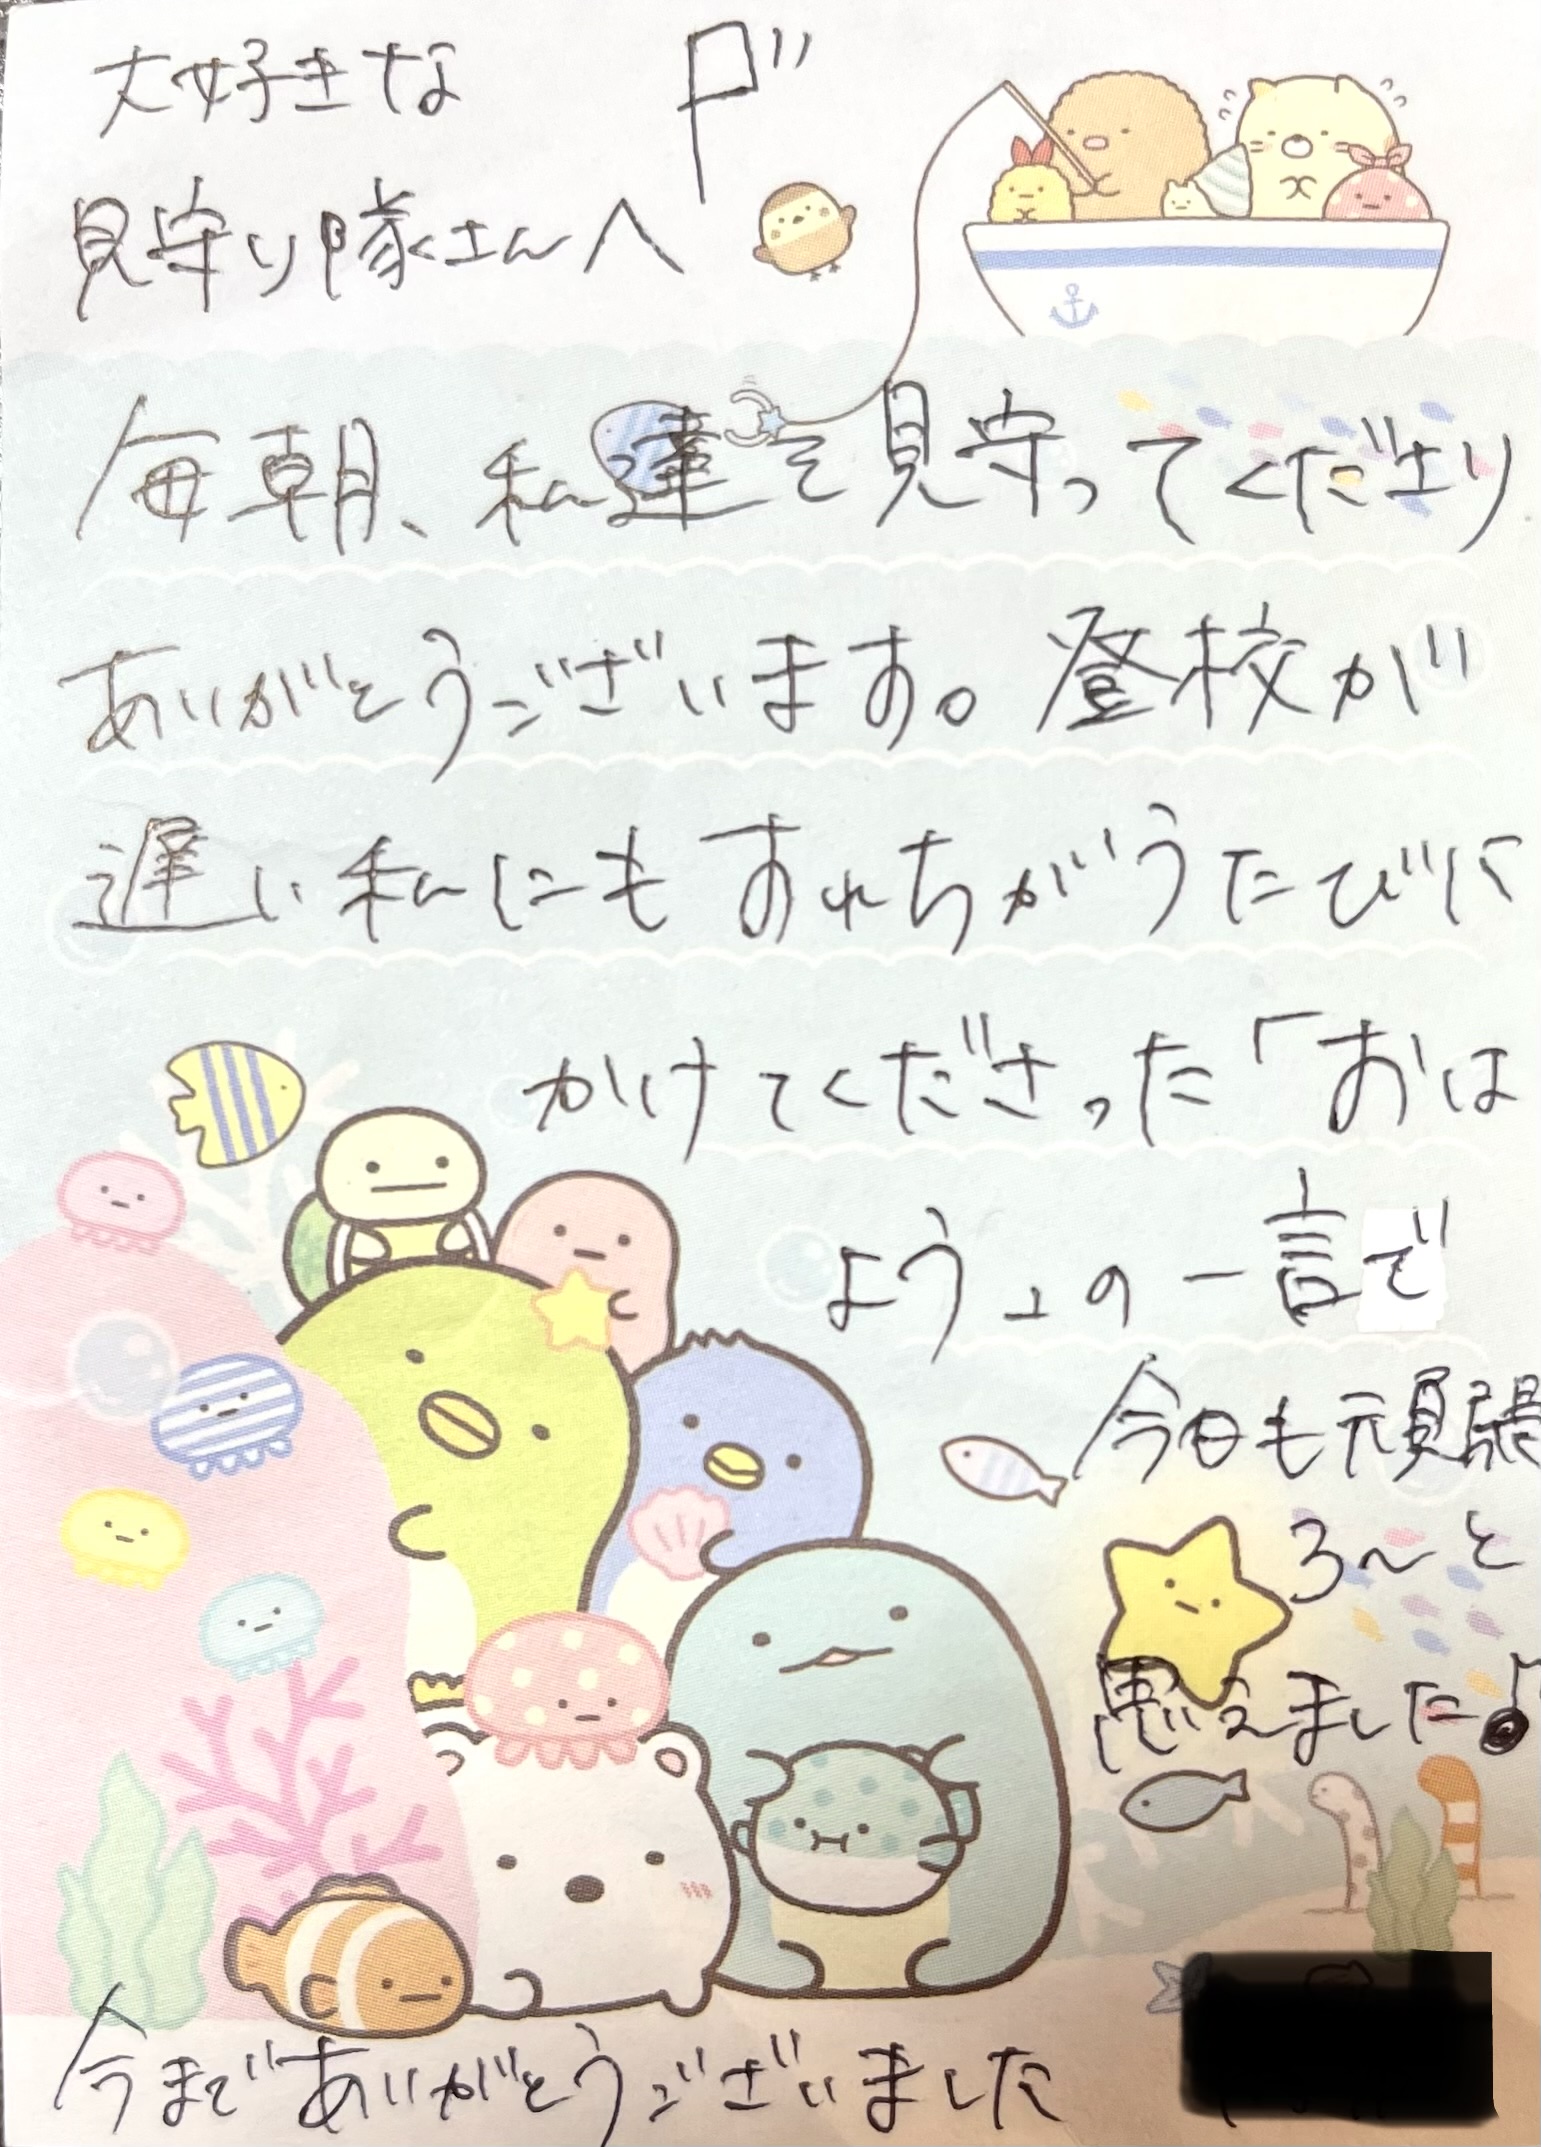 大好きな
見守り隊さんへ
毎朝、私達を見守ってくださり
ありがとうございます。登校が
遅い私にもすれちがうたびに
かけてくださった「おは
よう」の一言で
今日も頑張
ろ～と
思えました♪
今までありがとうございました